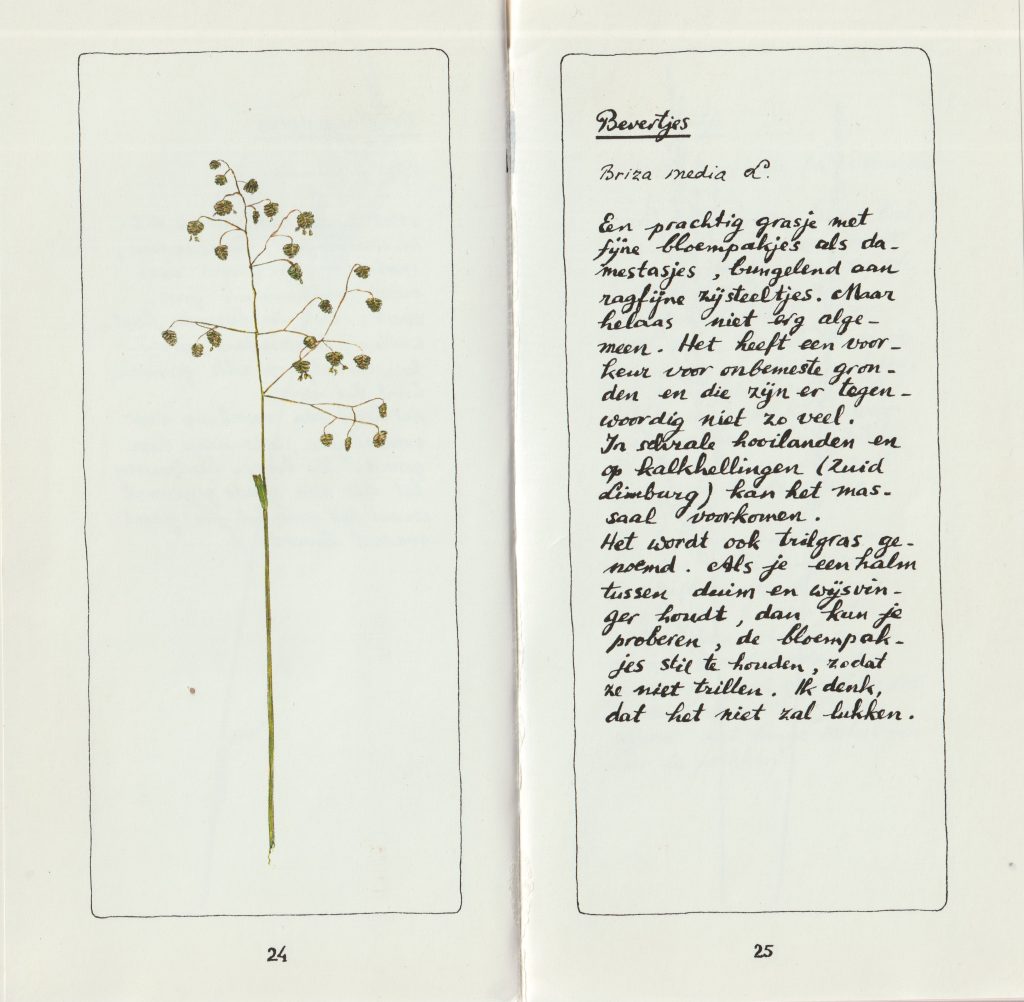 Bevertjes
Briza media L.
Een prachtig grasje met
fijne bloempakjes als da-
mestasjes, bungelend aan
ragfijne zijsteeltjes. Maar
helaas niet erg alge-
meen. Het heeft een voor-
keur voor onbemeste gron-
den en die zijn er tegen-
woordig niet zo veel.
In schrale hooilanden en
op kalkhellingen (Zuid
Limburg) kan het mas-
saal voorkomen.
Het wordt ook trilgras ge-
noemd. Als je een halm
tussen duim en wijsvin-
ger houdt, dan kun je
proberen, de bloempak-
jes stil te houden, zodat
ze niet trillen. Ik denk,
dat het niet zal lukken.
24
25